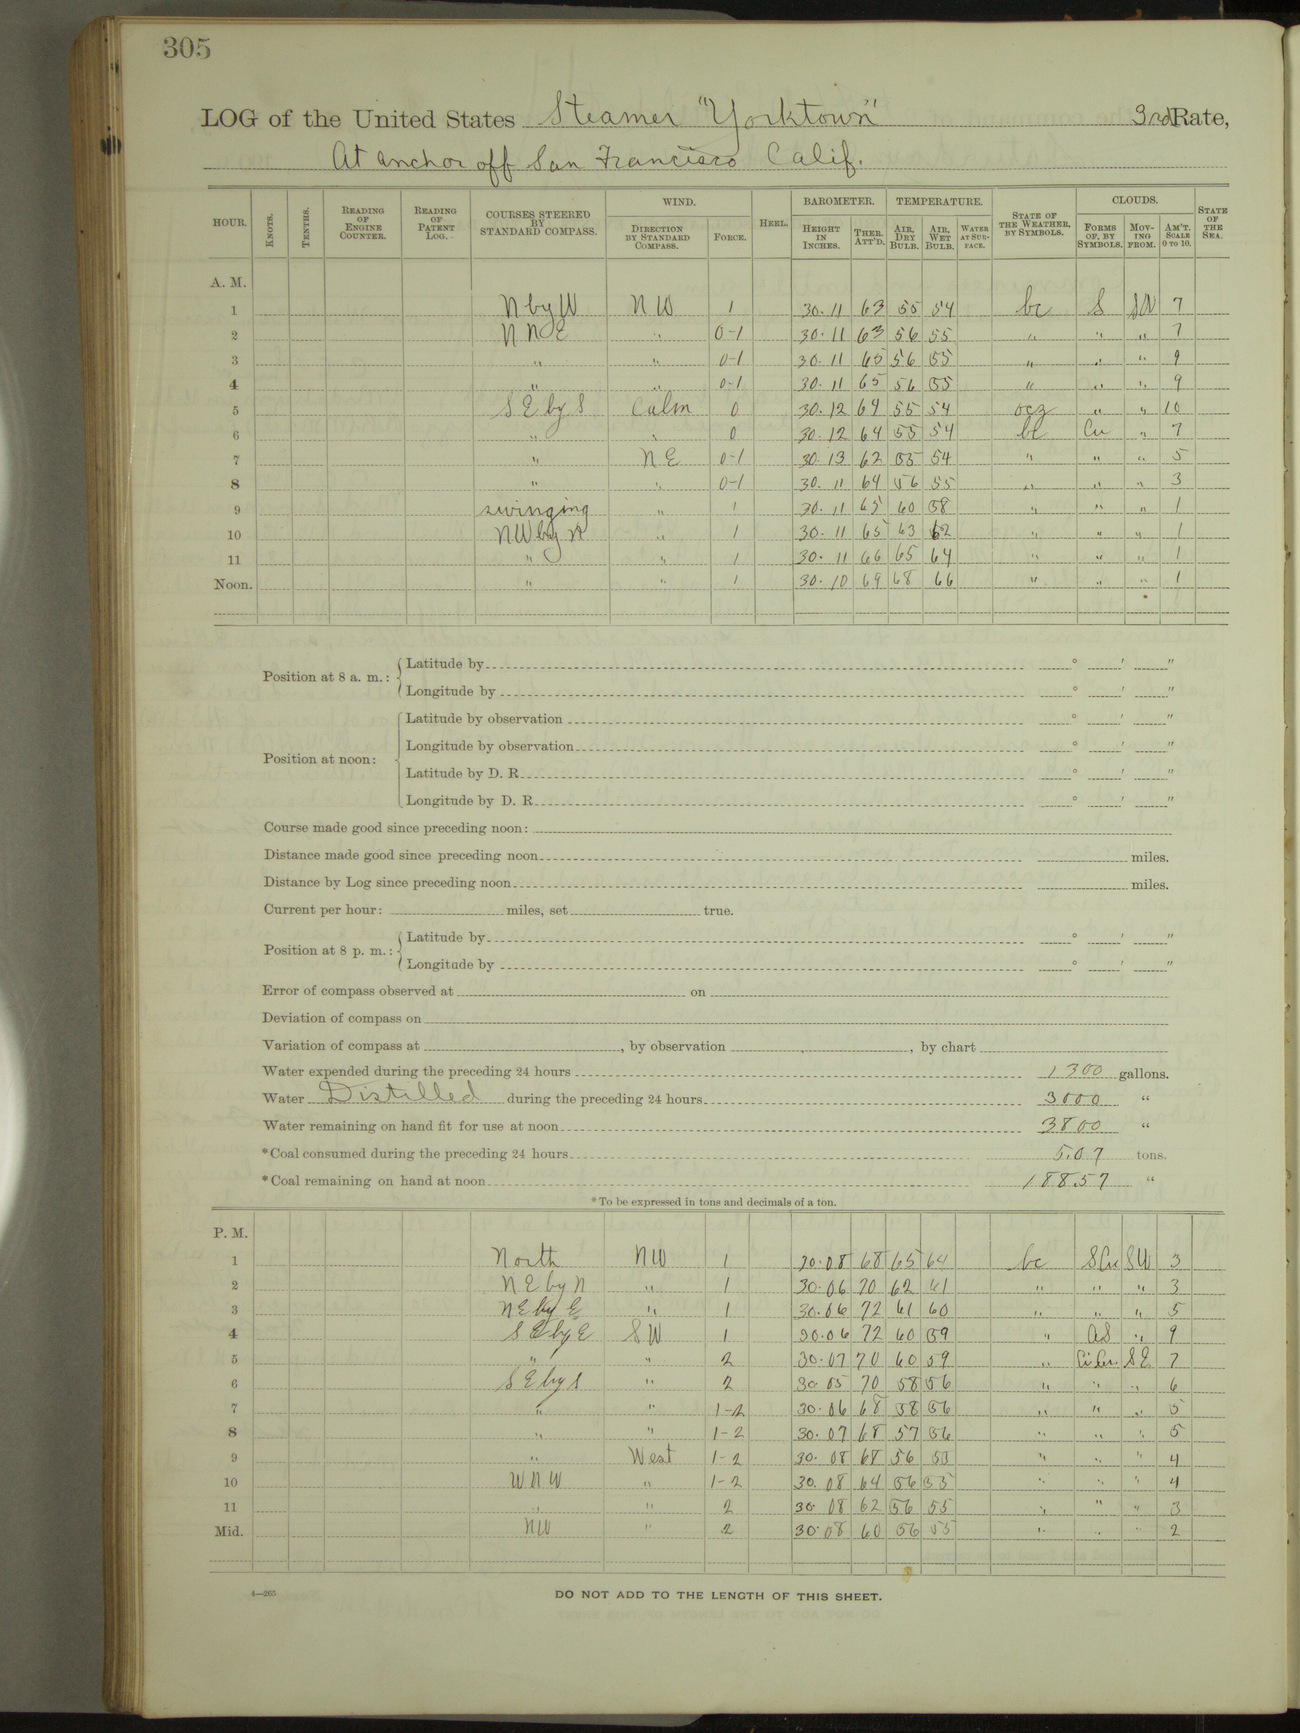 305
LOG of the United States Steamer "Yorktown" 3rd Rate,
At anchor off San Francisco Calif.
HOUR. KNOTS. TENTHS. READING OF ENGINE COUNTER. READING OF PATENT LOG. COURSES STEERED BY STANDARD COMPASS. WIND. DIRECTION BY STANDARD COMPASS. FORCE. HEEL. BAROMETER. HEIGHT IN INCHES. THER. ATT'D. TEMPERATURE. AIR, DRY BULB. AIR, WET BULB. WATER AT SURFACE. STATE OF THE WEATHER, BY SYMBOLS. CLOUDS. FORMS OF, BY SYMBOLS. MOVING FROM. AM'T. SCALE 0 TO 10. STATE OF THE SEA.
A. M.
1 N by W NW 1 30.11 63 55 54 bc S SW 7
2 NNE " 0-1 30.11 63 56 55 " " " 7
3 " " 0-1 30.11 65 56 55 " " " 9
4 " " 0-1 30.11 65 56 55 " " " 9
5 SE by S Calm 0 30.12 64 55 54 ocz " " 10
6 " " 0 30.12 64 55 54 bc Cu " 7
7 " NE 0-1 30.13 62 55 54 " " " 5
8 " " 0-1 30.11 64 56 55 " " " 3
9 swinging " 1 30.11 65 60 58 " " " 1
10 NW by N " 1 30.11 65 63 62 " " " 1
11 " " 1 30.11 66 65 64 " " " 1
Noon. " " 1 30.10 69 68 66 " " " 1
Position at 8 a. m.: Latitude by ° ' "
Longitude by ° ' "
Position at noon: Latitude by observation ° ' "
Longitude by observation ° ' "
Latitude by D. R. ° ' "
Longitude by D. R. ° ' "
Course made good since preceding noon:
Distance made good since preceding noon miles.
Distance by Log since preceding noon miles.
Current per hour: miles, set true.
Position at 8 p. m.: Latitude by ° ' "
Longitude by ° ' "
Error of compass observed at on
Deviation of compass on
Variation of compass at , by observation , by chart
Water expended during the preceding 24 hours 1300 gallons.
Water Distilled during the preceding 24 hours 3000 "
Water remaining on hand fit for use at noon 3800 "
*Coal consumed during the preceding 24 hours 5.07 tons.
*Coal remaining on hand at noon 188.57 "
*To be expressed in tons and decimals of a ton.
P. M.
1 North NW 1 30.08 68 65 64 bc SCu SW 3
2 NE by N " 1 30.06 70 62 61 " " " 3
3 NE by E " 1 30.06 72 61 60 " " " 5
4 SE by E SW 1 30.06 72 60 59 " AS " 9
5 " " 2 30.07 70 60 59 " CiCu. SE 7
6 SE by S " 2 30.05 70 58 56 " " " 6
7 " " 1-2 30.06 68 58 56 " " " 5
8 " " 1-2 30.07 68 57 56 " " " 5
9 " West 1-2 30.08 68 56 55 " " " 4
10 WNW " 1-2 30.08 64 56 55 " " " 4
11 " " 2 30.08 62 56 55 " " " 3
Mid. NW " 2 30.08 60 56 55 " " " 2
4—265
DO NOT ADD TO THE LENGTH OF THIS SHEET.